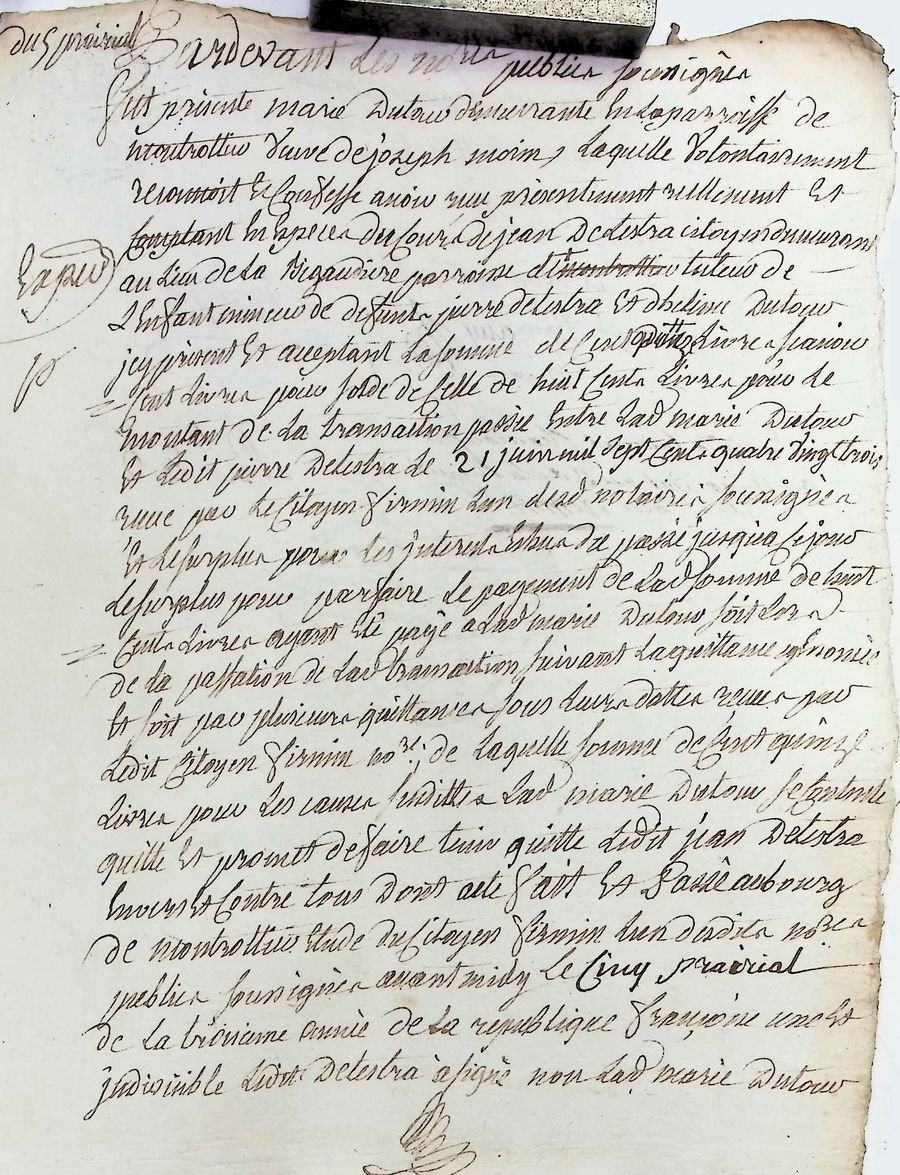 du 5 prairial
Pardevant les no.res publics soussignés
fut présente marie Dutour demeurante En la parroisse de
montrottier veuve de joseph moins, Laquelle volontairement
reconnoit Et Confesse avoir reçu présentement reellement Et
Comptant En Especes du Cours de jean Delestra citoyen demeurant
au Lieu de La Bigaudiere parroisse de montrottier tuteur de
L'Enfant mineur de defunts pierre delestra Et Dutour
Expedié
jcy présent Et acceptant La somme de Cent Livres sçavoir
Cent Livres pour solde de Celle de huit Cents Livres pour Le
montant de La transaction passée Entre Lad marie Dutour
Et Ledit pierre Delestra Le 21 mil sept Cents quatre vingt trois
reçue par Le Citoyen firmin L'un desd notaires soussignés
Et Le surplus pour Les jnterets Echus du passé jusqu'a Ce jour
Le surplus pour parfaire Le payement de Lad somme de huit
Cents Livres ayant Eté payé a Lad marie Dutour soit Lors
de La passation de Lad transaction suivant La quittance
Et soit par plusieurs quittances sous Leurs dattes reçues par
Ledit Citoyen firmin no.re; de Laquelle somme de Cent quinze
Livres pour Les causes susdittes Lad marie Dutour se Contente
quitte Et promet de faire tenir quitte Ledit jean Delestra
Envers Et Contre tous Dont acte fait Et Passé au bourg
de montrottier Etude du Citoyen firmin L'un desdits no.res
publics soussignés avant midy Le Cinq prairial
de La troisieme année de La republique françoise une Et
jndivisible Ledit Delestra a signé non Lad marie Dutour